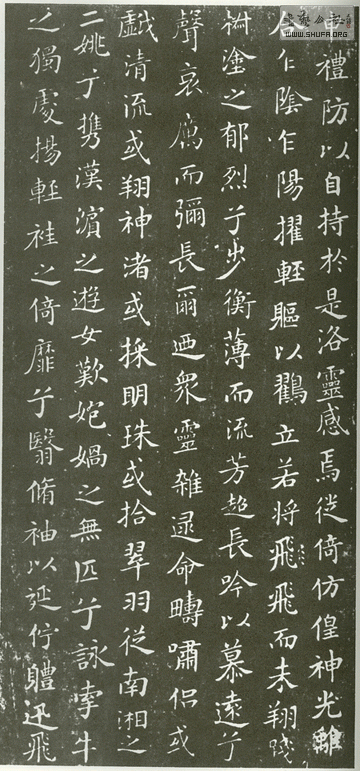 WWW.SHUFA.ORG
申禮防以自持於是洛靈感焉徙倚仿偟神光離
合乍陰乍陽擢輕軀以鸖立若將飛飛而未翔踐
椒塗之郁烈兮步衡薄而流芳超長吟以慕遠兮
聲哀厲而彌長爾迺衆靈雜遝命疇嘯侶或
戲清流或翔神渚或採明珠或拾翠羽從南湘之
二姚兮攜漢濱之遊女歎匏媧之無匹兮詠牽牛
之獨處揚輕袿之倚靡兮翳脩袖以延佇軆迅飛